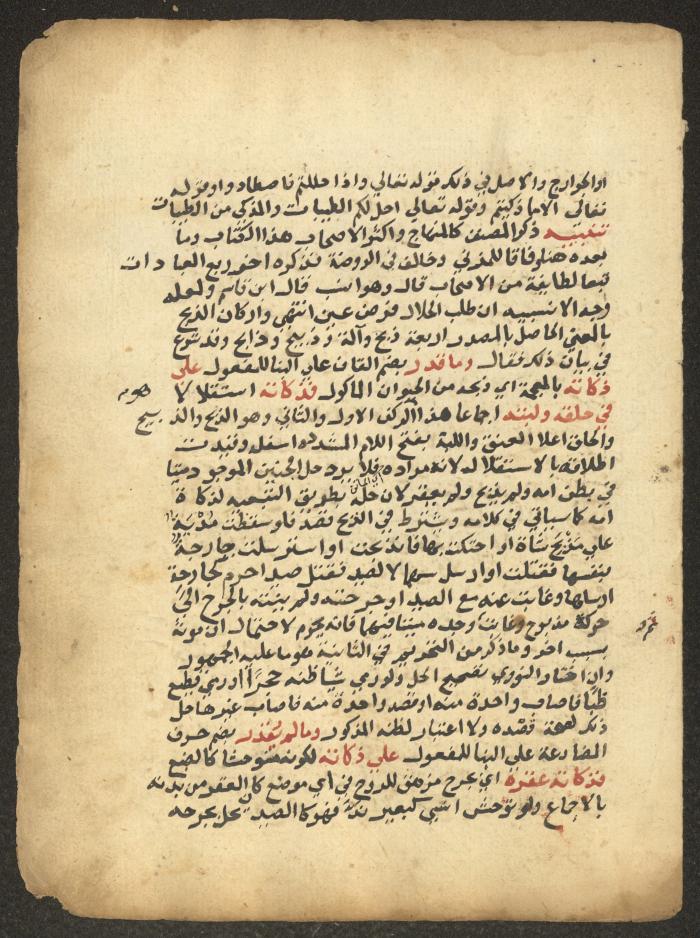 او الجوارح والاصل في ذلك قوله تعالي واذا حللتم فاصطادوا وقوله
تعالي الا ما ذكيتم وقوله تعالي احل لكم الطيبات والمذكي من الطيبات
تنبيه ذكر المصنف كالمنهاج واكثر الاصحاب هذا الكتاب وما
بعده هنا وفاقا للمزني وخالف في الروضة فذكره اخر ربع العبادات
تبعا لطايفة من الاصحاب قال وهو انسب قال ابن قاسم ولعله
وجه الانسبيه ان طلب الحلال فرض عين انتهي واركان الذبح
بالمعني الحاصل بالمصدر اربعة ذبح وآلة وذبيح وذابح وقد شرع
في بيان ذلك فقال وما قدر بضم القاف علي البنا للمفعول علي
ذكاته بالمعجمة اي ذبحه من الحيوان الماكول فذكاته استقلالا
في حلقه ولبته اجماعا هذا هو الركن الاول والثاني وهو الذبح والذبيح
والحلق اعلا العنق واللبة بفتح اللام المشددة اسفله وقيدت
اطلاقه بالاستقلال لانه مراده فلا يرد حل الجنين الموجود ميتا
في بطن امه ولم يذبح ولم يعقر لان حله بطريق التبعيه لذكاة
امه كما سياتي في كلامه وشرط في الذبح قصد فلو سقطت مدية
علي مذبح شاة او احتكت بها فانذبحت او استرسلت جارحة
بنفسها فقتلت او ارسل سهما لا لصيد فقتل صيدا حرم كجارحة
ارسلها وغابت عنه مع الصيد او جرحته ولم ينته بالجرح الي
حركة مذبوح وغاب وجده ميتا فيهما فانه يحرم لاحتمال ان موته
بسبب اخر وما ذكر من التحريم في الثانية هو ما عليه الجمهور
وان اختار النووي تصحيح الحل ولو رمي شيا ظنه حجرا او رمي قطيع
ظبا فاصاب واحدة منه او قصد واحدة منه فاصاب غيرها حل
ذلك لصحة قصده ولا اعتبار لظنه المذكور وما لم يقدر بضم حرف
المضارعة علي البنا للمفعول علي ذكاته لكونه متوحشا كالضبع
فذكاته عقره اي بجرح مزهق للروح في اي موضع كان العقر من بدنه
بالاجماع ولو توحش انسي كبعير ند فهو كالصيد يحل بجرحه